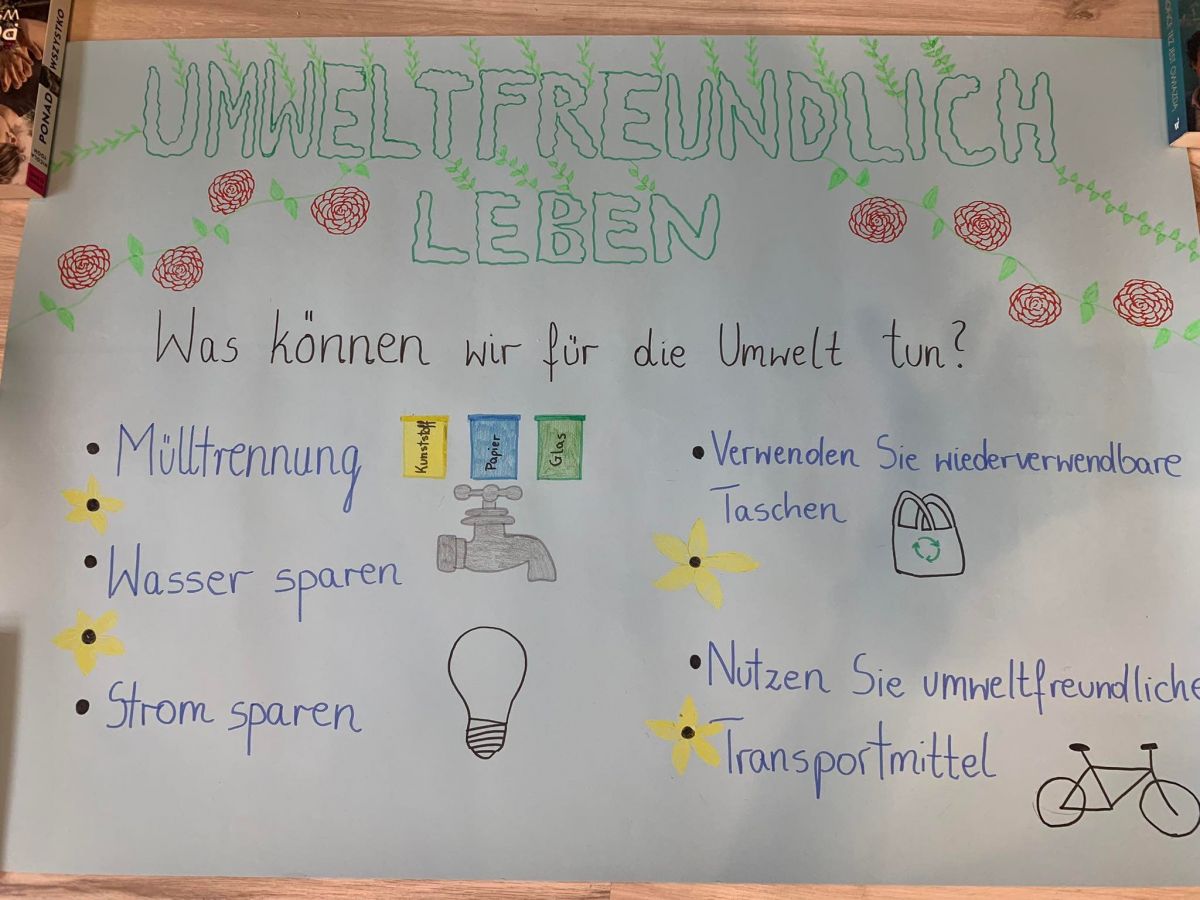 UMWELTFREUNDLICH
LEBEN
Was können wir für die Umwelt tun?
• Mülltrennung
Kunststoff
Papier
Glas
• Wasser sparen
• Strom sparen
• Verwenden Sie wiederverwendbare
Taschen
• Nutzen Sie umweltfreundliche
Transportmittel
PONAD
WSZYSTKO